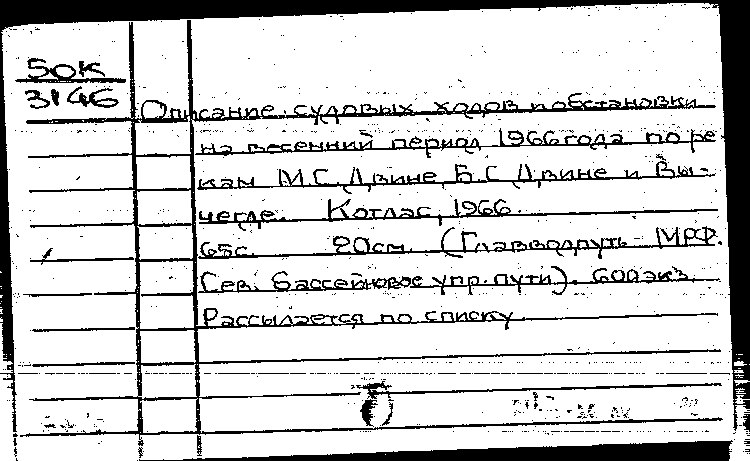 50К
3146
Описание судовых ходов и обстановки
на весенний период 1966 года по ре-
кам М.С.Двине, Б.С.Двине и Вы-
чегде. Котлас, 1966.
65с. 20см. (Главводпуть МРФ.
Сев. бассейновое упр. пути). 600экз.
Рассылается по списку